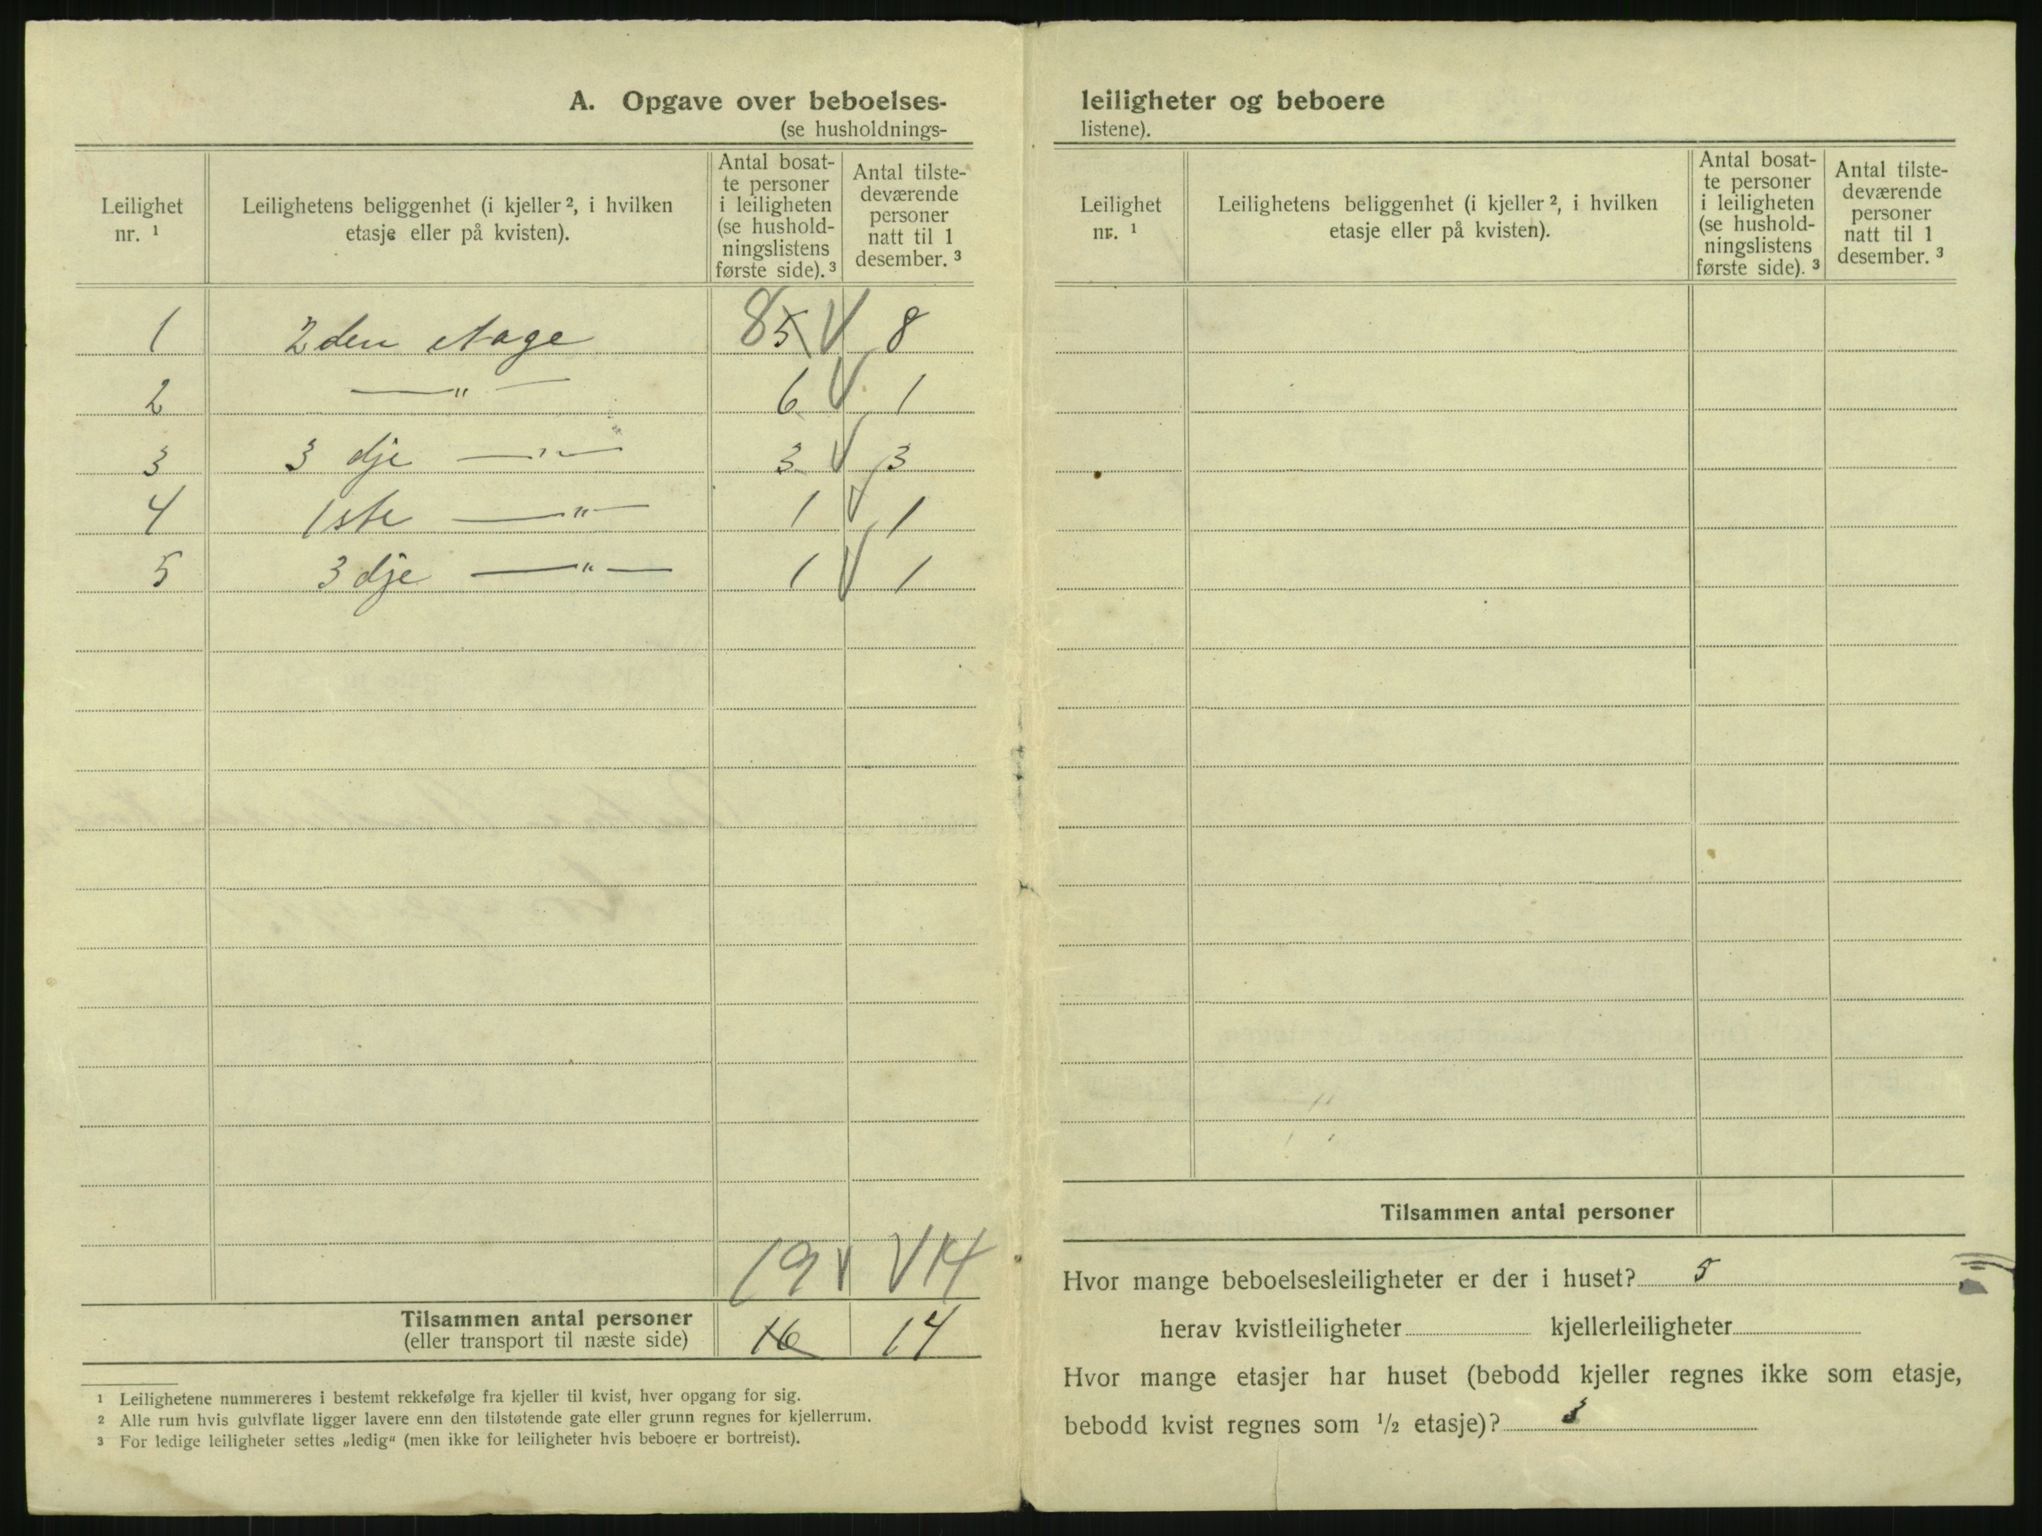 A. Opgave over beboelses-
(se husholdnings-
Leilighet
nr. ¹
Leilighetens beliggenhet (i kjeller ², i hvilken
etasje eller på kvisten).
Antal bosat-
te personer
i leiligheten
(se hushold-
ningslistens
første side). ³
Antal tilste-
deværende
personer
natt til 1
desember. ³
1 2den etage 8 5 8
2 —〃— 6 1
3 3dje —〃— 3 3
4 1ste —〃— 1 1
5 3dje —〃— 1 1
19 14
Tilsammen antal personer 16 14
(eller transport til næste side)
¹ Leilighetene nummereres i bestemt rekkefølge fra kjeller til kvist, hver opgang for sig.
² Alle rum hvis gulvflate ligger lavere enn den tilstøtende gate eller grunn regnes for kjellerrum.
³ For ledige leiligheter settes „ledig“ (men ikke for leiligheter hvis beboere er bortreist).
leiligheter og beboere
listene).
Leilighet
nr. ¹
Leilighetens beliggenhet (i kjeller ², i hvilken
etasje eller på kvisten).
Antal bosat-
te personer
i leiligheten
(se hushold-
ningslistens
første side). ³
Antal tilste-
deværende
personer
natt til 1
desember. ³
Tilsammen antal personer
Hvor mange beboelsesleiligheter er der i huset? 5
herav kvistleiligheter kjellerleiligheter
Hvor mange etasjer har huset (bebodd kjeller regnes ikke som etasje,
bebodd kvist regnes som ½ etasje)? 3